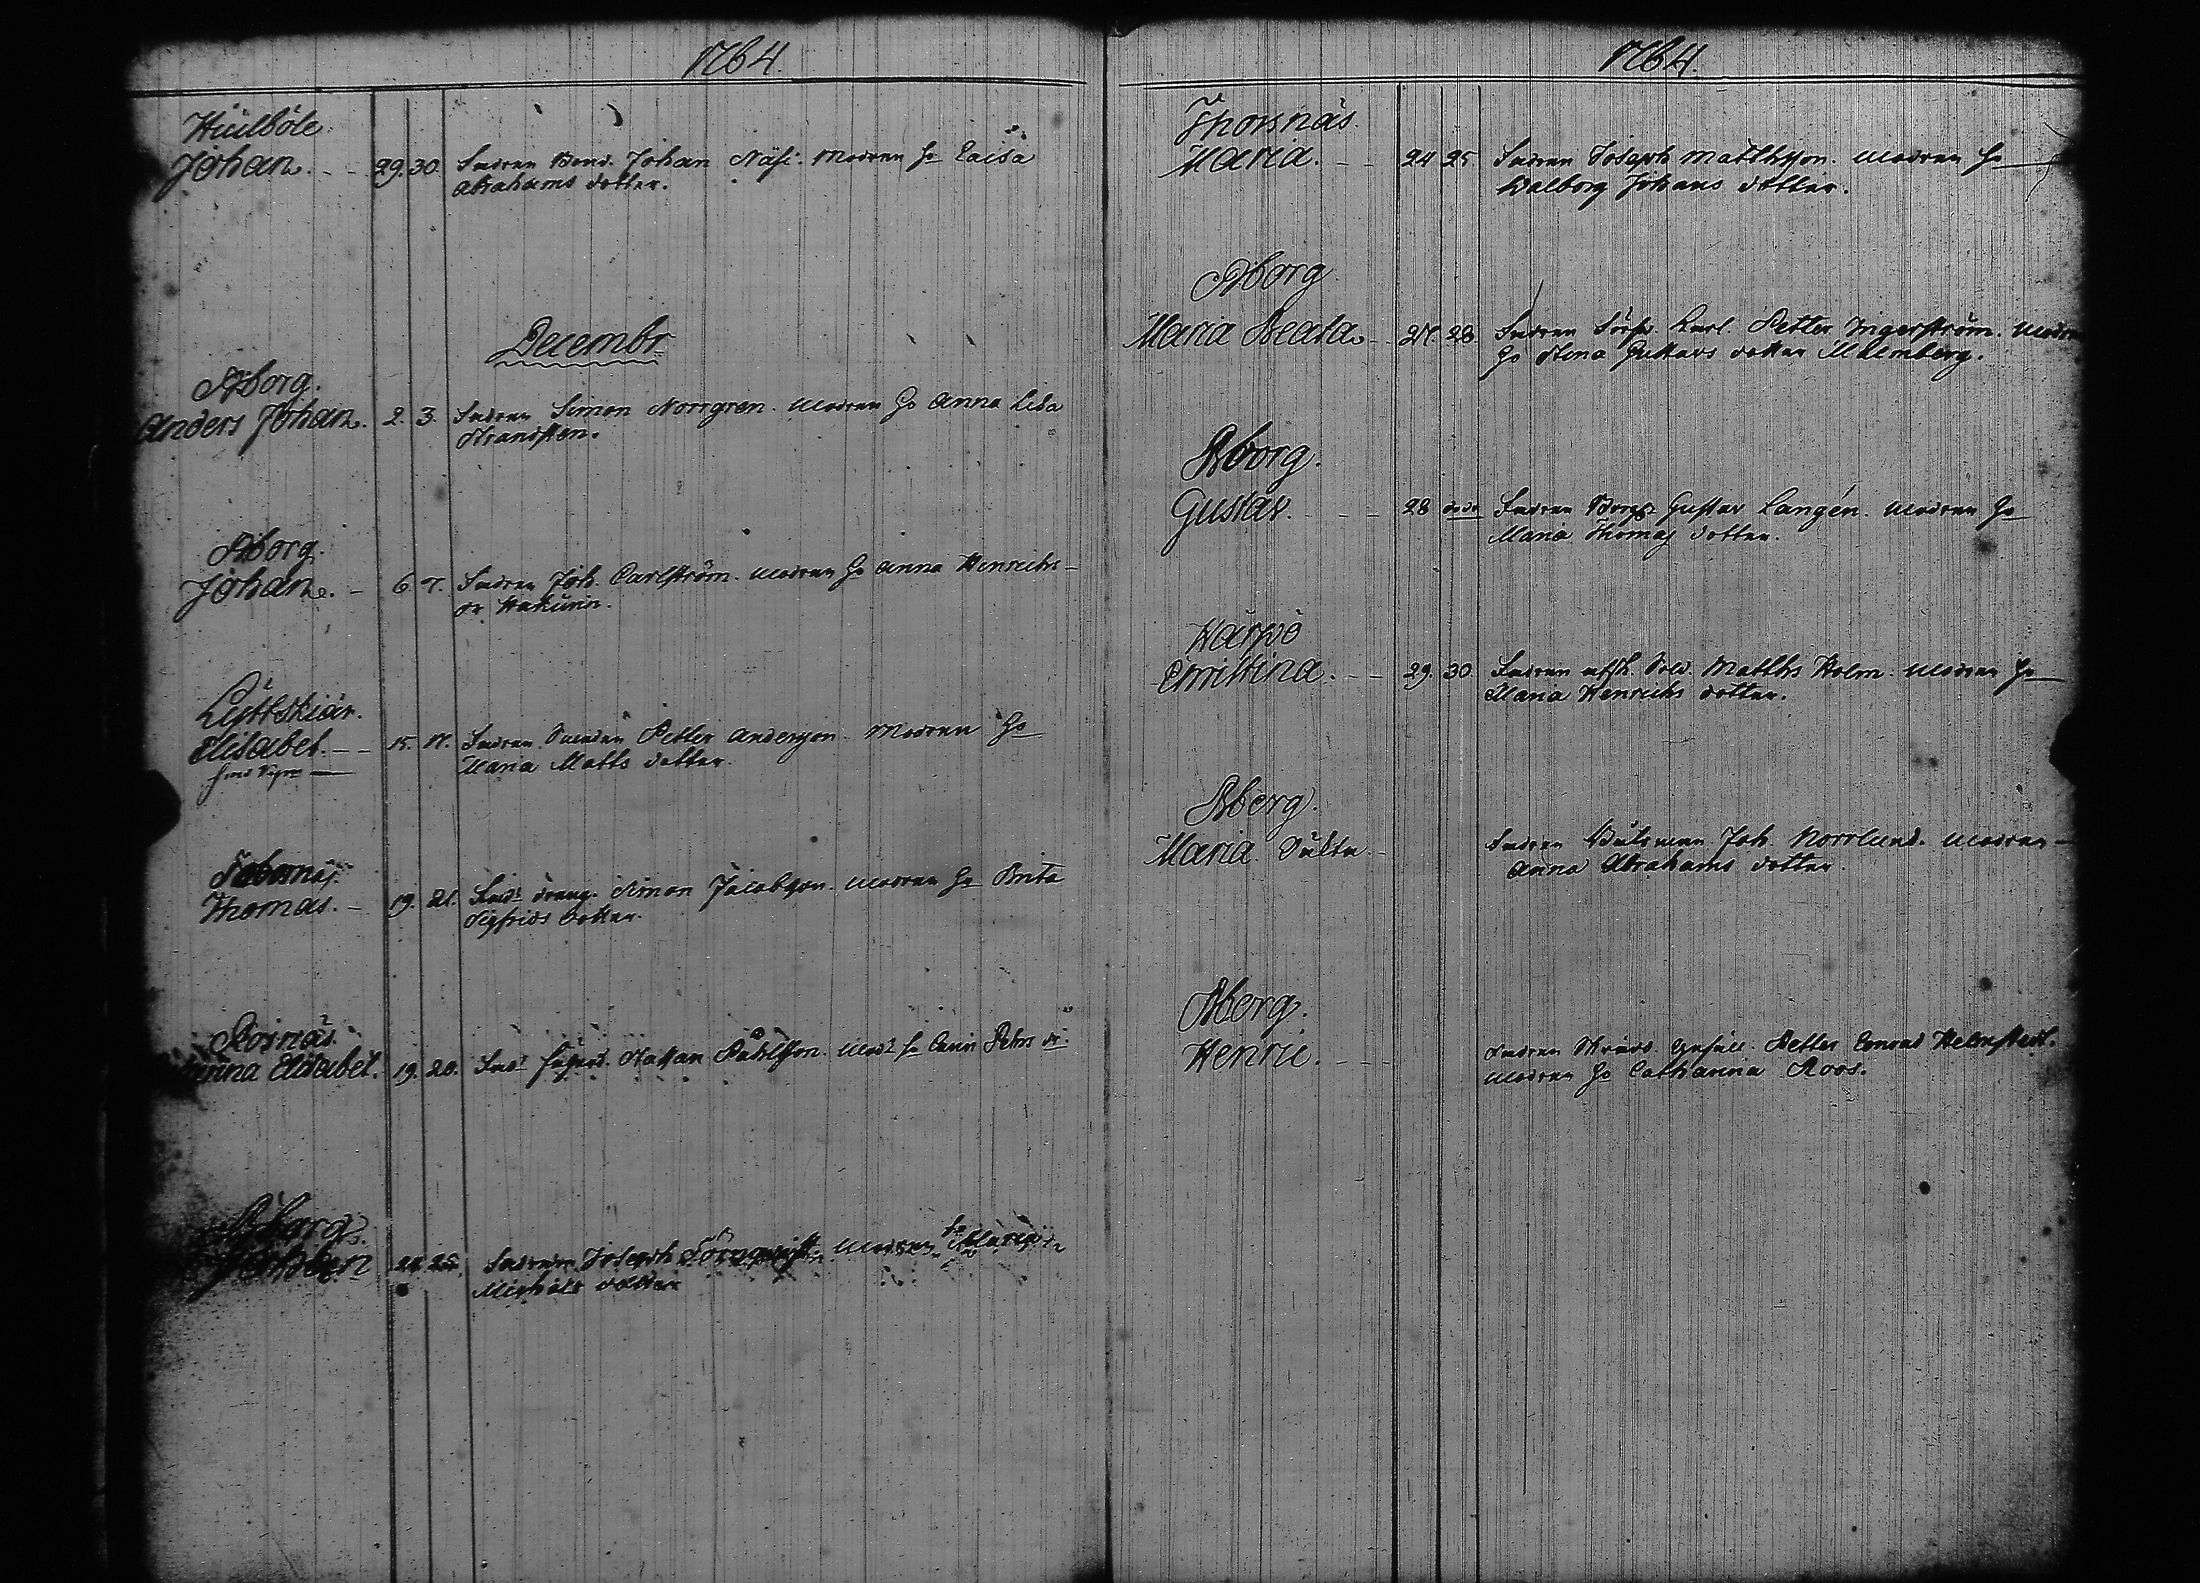 1764.
Johan. 29. 30. Fadren Bond. Johan Näsi. Modren H: Caisa
Abrahams dotter.
Decembr
Aborg.
Anders Johan. 2. 3. Fadren Simon Norrgren. Modren H: Anna Lisa
Strandsten.
Aborg.
Johan. 6. 7. Fadren Joh. Carlström. Modren H: Anna Henrichs
dr
Elisabet. 15. 17. Fadren Petter Andersson. Modren H:
Maria Matts dotter.
Thomas. 19. 21. Fadr dreng. Simon Jacobsson. Modren H: Brita
Sigfrids dotter.
Elisabet. 19. 20. Fadr Påhlsson. Modr H: Carin Petters dr.
Aborg.
Fadren Joseph Törnqvist. Modren H: Maria
Michels dotter
1764.
Thorsnäs.
Maria. 24 25 Fadren Joseph Matthsson. Modren H:
Walborg Johans dotter.
Aborg
Maria Beata. 27. 28. Fadren Carl Petter Ingerström. Modren
H: Stina Gustavs dotter Malmberg.
Aborg.
Gustav. 28 dodo Fadren Borg. Gustav Langén. Modren H:
Maria Thomas dotter.
Christina. 29. 30. Fadren afsk. Sold. Matths Holm. Modren H:
Maria Henrichs dotter.
Aberg.
Maria Fadren Båtsman Joh. Norrlund. Modren
Anna Abrahams dotter.
Aberg.
Henric. Fadren Skrädd. gesäll. Petter Conrad Helmstedt.
Modren H: Catharina Roos.